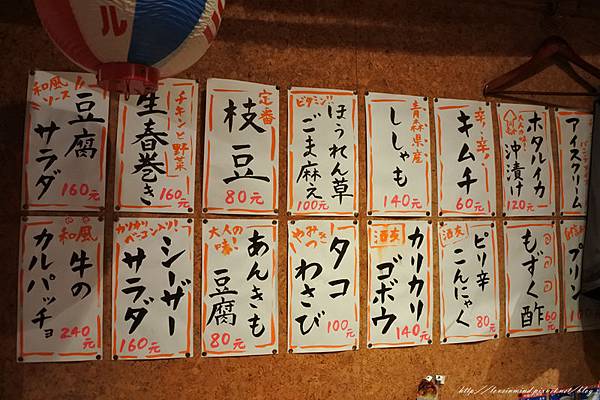 ル
和風
ソース
豆腐
サラダ
160元
チキンと野菜
生春巻き
160元
定番
枝豆
80元
ビタミン!!
ほうれん草
ごま麻え
100元
青森県産
ししゃも
140元
辛!辛!
キムチ
60元
大人の味!
ホタルイカ
沖漬け
120元
アイスクリーム
和風
牛の
カルパッチョ
240元
カリカリ
ベーコン入り!
シーザー
サラダ
160元
大人の
味!
あんきも
豆腐
80元
やみつき
タコ
わさび
100元
酒友
カリカリ
ゴボウ
140元
酒友
ピリ辛
こんにゃく
80元
もずく酢
60元
プリン